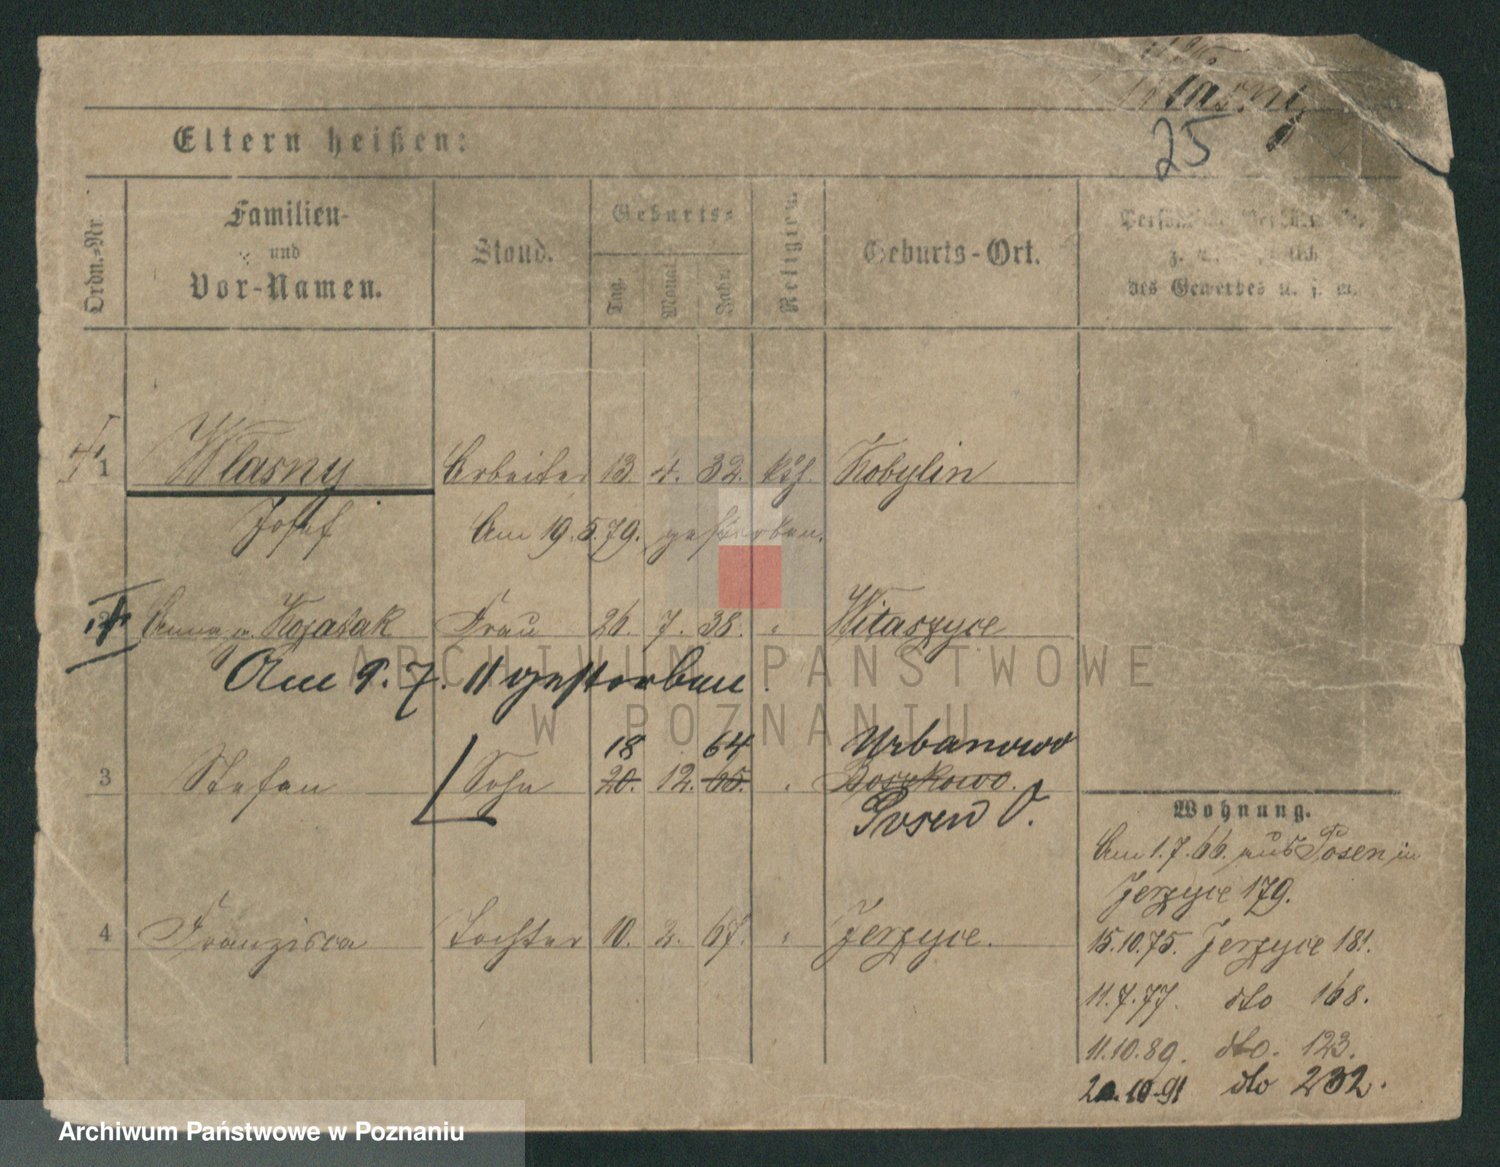 Wlasny
25
Eltern heißen:
Ordn.-Nr.
Familien-
und
Vor-Namen.
Stand.
Geburts-
Tag.
Monat
Jahr.
Religion.
Geburts-Ort.
des Gewerbes u. s. w.
1 Wlasny Arbeiter 13. 4. 32. kth. Kobylin
Josef Am 19.5.79. gestorben.
2 Anna g. Kozatak Frau 26. 7. 38. " Witaszyce
Am 9.7.11 gestorben.
18 64 Urbanowo
3 Stefan Sohn 20. 12. 65. " Boszkowo.
Posen O.
4 Franziska Tochter 10. 2. 67. " Jerzyce.
Wohnung.
Am 1.7.66. aus Posen in
Jerzyce 179.
15.10.75. Jerzyce 181.
11.7.77. dto 168.
11.10.89. dto. 123.
20.10.91 dto 232.
ARCHIWUM PAŃSTWOWE
W POZNANIU
Archiwum Państwowe w Poznaniu